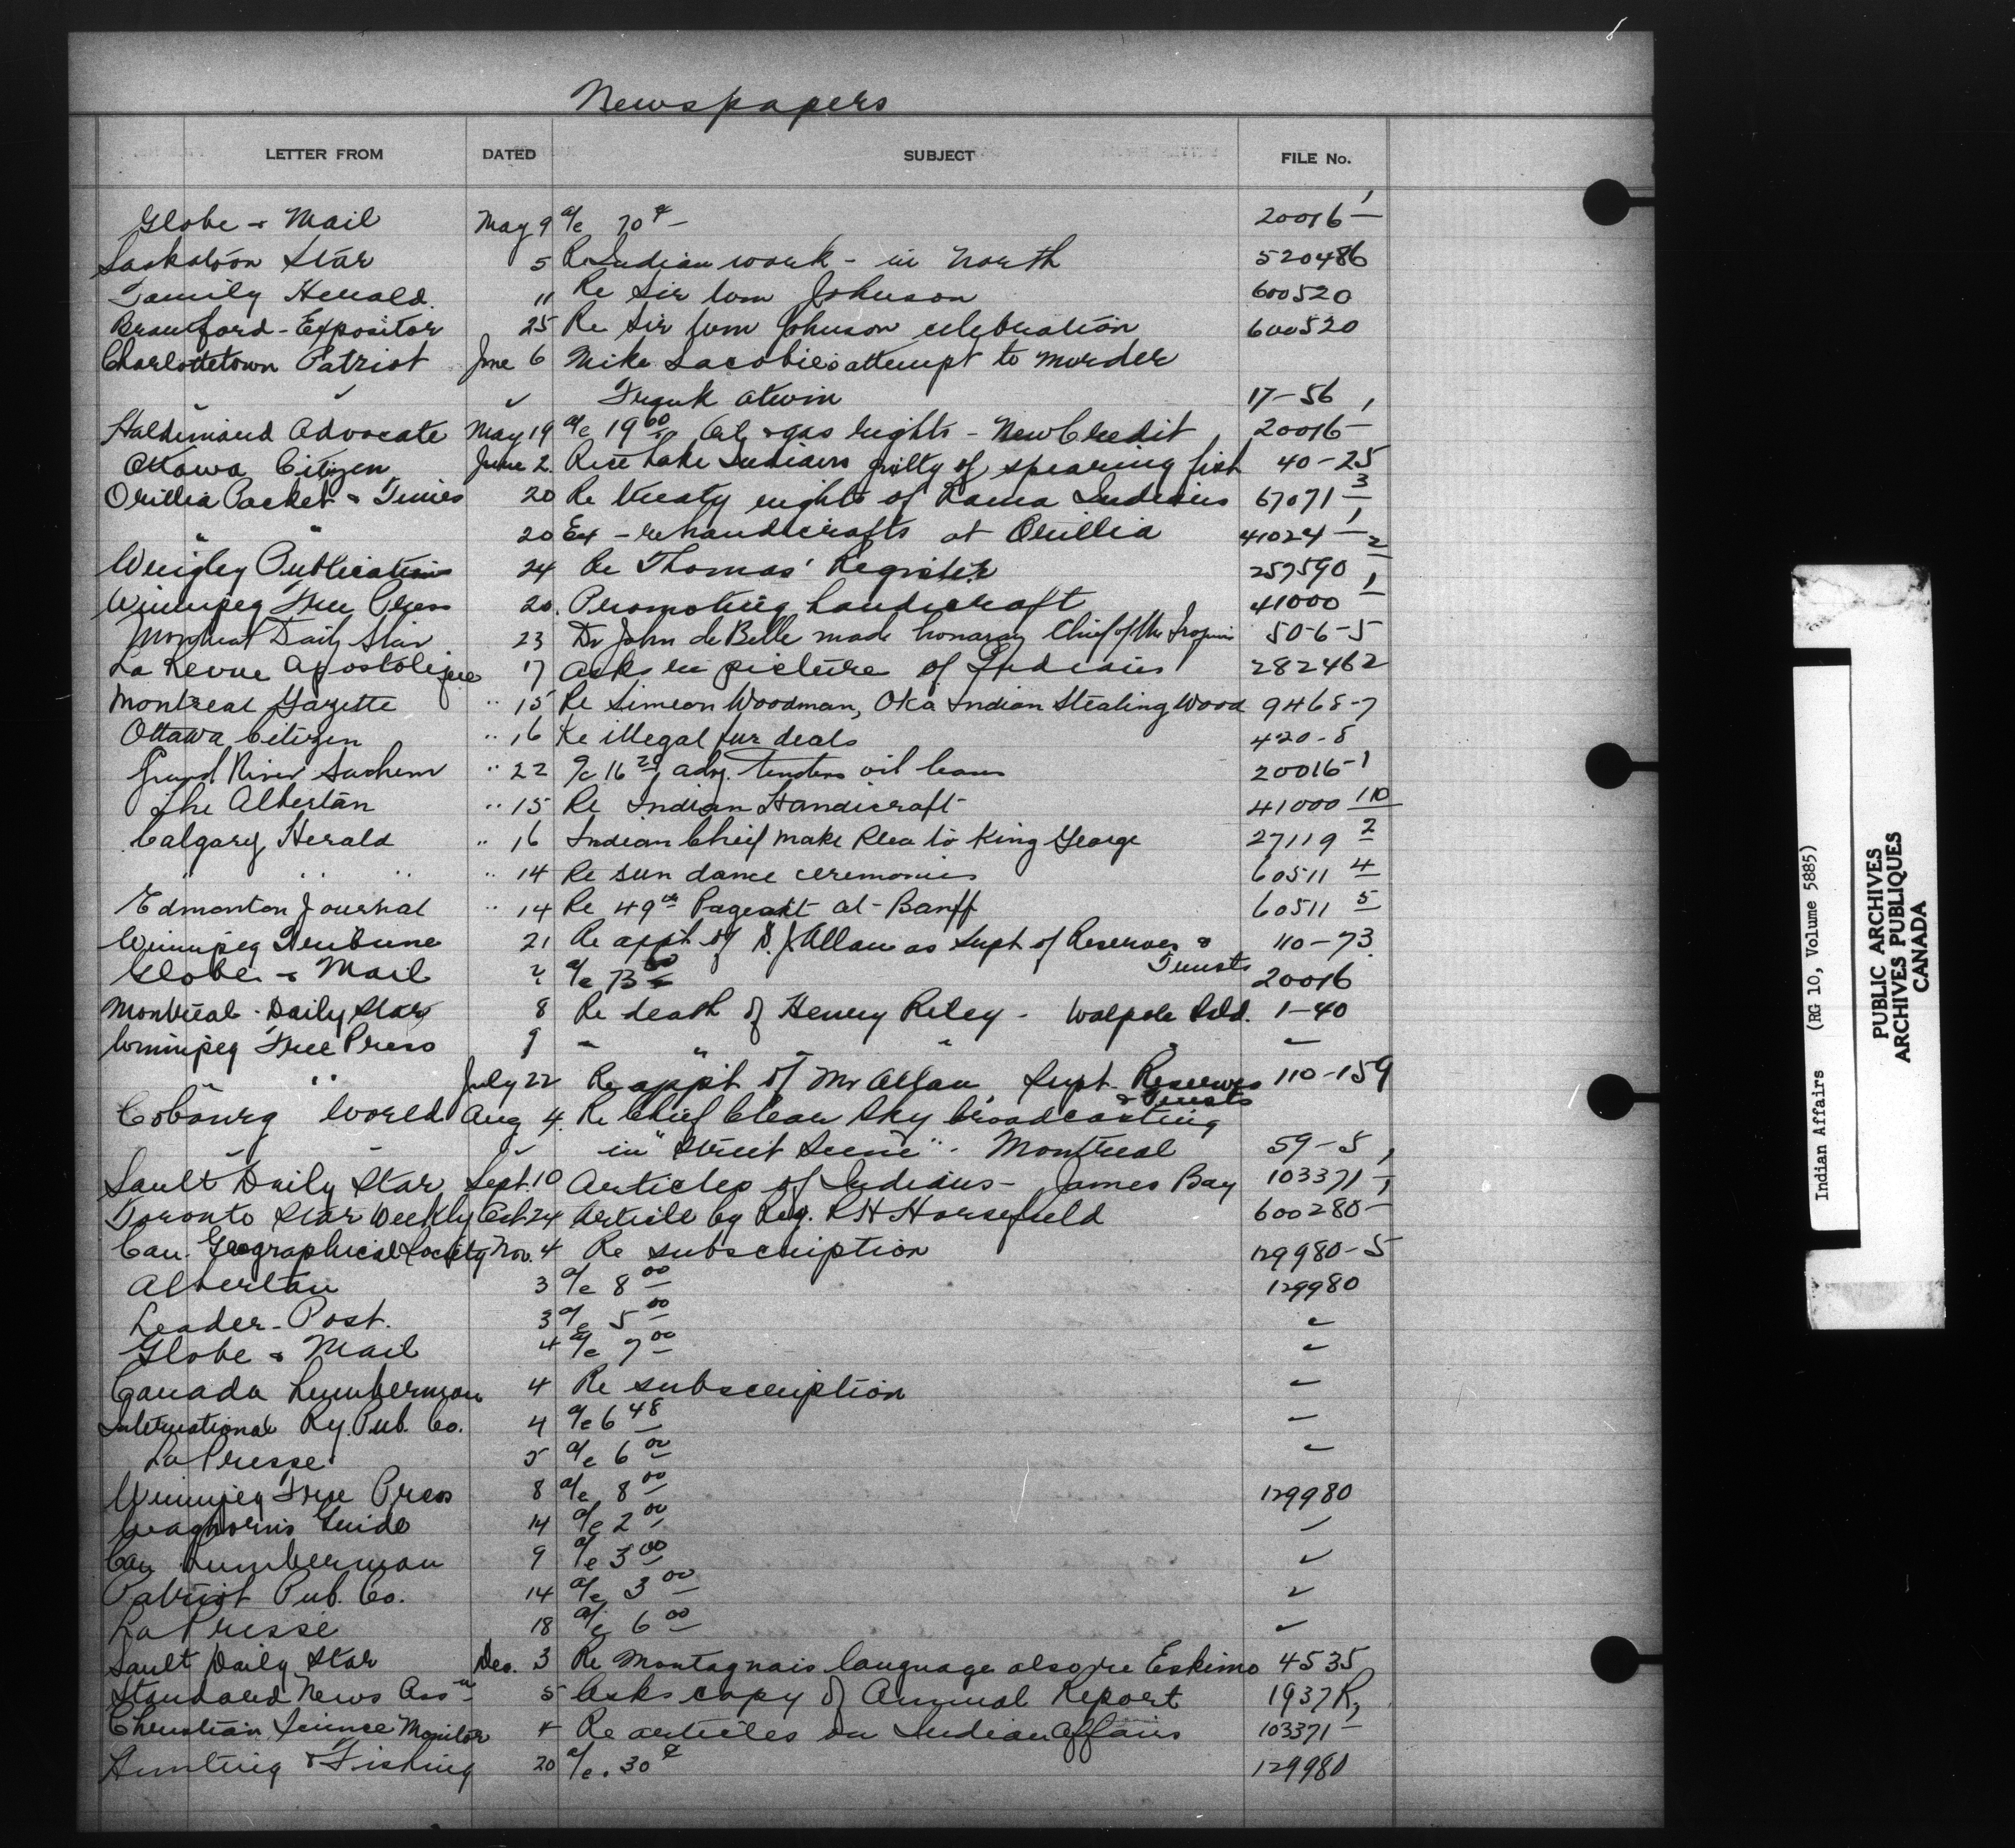 Newspapers
LETTER FROM DATED SUBJECT FILE No.
Globe & Mail May 9 a/c 70¢ - 20016-1
Saskatoon Star 5 Re Indian work - in North 520486
Family Herald. 11 Re Sir Wm Johnson 600520
Brantford - Expositor 25 Re Sir Wm Johnson celebration 600520
Charlottetown Patriot June 6 Mike Lacobie's attempt to murder
" " " Frank Atwin 17-56
Haldimand Advocate May 19 a/c 19 60 Oil & gas rights - New Credit 20016-1
Ottawa Citizen June 2. Rice Lake Indians guilty of spearing fish 40-25
Orillia Packet & Times 20 Re treaty rights of Rama Indians 67071-3
" " 20 Ex - re handicrafts at Orillia 41024-1
Wrigley Publications 24 Re Thomas' Register 257590 2
Winnipeg Free Press 20. Promoting handicraft 41000 1
Montreal Daily Star 23 Dr John de Belle made honarary Chief of the Iroquois 50-6-5
La Revue Apostolique 17 asks re picture of Indians 282462
Montreal Gazette " 15 Re Simeon Woodman, Oka Indian Stealing Wood 9468-7
Ottawa Citizen " 16 Re illegal fur deals 420-8
Grand River Sachem " 22 a/c 16 20, adv. tenders oil leases 20016-1
The Albertan " 15 Re Indian Handicraft - 41000 110
Calgary Herald " 16 Indian Chief make Plea to King George 27119 2
" " " " 14 Re sun dance ceremonies 60511 4
Edmonton Journal " 14 Re 49th Pageant at - Banff 60511 5
Winnipeg Tribune 21 Re appt of D. J. Allan as Supt of Reserves & 110-73
Trusts
Globe & Mail 2 a/c 73 00 20016
Montreal - Daily Star 8 Re death of Henry Riley - Walpole Isld. 1-40
Winnipeg Free Press 9 " " " " " "
" " July 22 Re app't of Mr Allan, Supt. Reserves 110-159
& Trusts
Cobourg World Aug 4. Re Chief Clear Sky broadcasting
" " " in "Street Scene" - Montreal 59-5
Sault Daily Star Sept. 10 Articles of Indians - James Bay 103371-1
Toronto Star Weekly Oct 24 Article by Rev. R H Horsefield 600280-1
Can. Geographical Society Nov. 4 Re subscription 129980-5
Albertan 3 a/c 8 00 129980
Leader - Post. 3 a/c 5 00 "
Globe & Mail 4 a/c 7 00 "
Canada Lumberman 4 Re subscription "
International Ry. Pub. Co. 4 a/c 6 48 "
La Presse 5 a/c 6 00 "
Winnipeg Free Press 8 a/c 8 00 129980
Waghorn's Guide 14 a/c 2 00 "
Can Lumberman 9 a/c 3 00 "
Patriot Pub. Co. 14 a/c 3 00 "
La Presse 18 a/c 6 00 "
Sault Daily Star Dec. 3 Re Montagnais language also re Eskimo 4535
Standard News Ass'n - 5 Asks copy of Annual Report 1937 R,
Christian Science Monitor 4 Re articles on Indian Affairs 103371-1
Hunting & Fishing 20 a/c .30¢ 129980
Indian Affairs (RG 10, Volume 5885)
PUBLIC ARCHIVES
ARCHIVES PUBLIQUES
CANADA